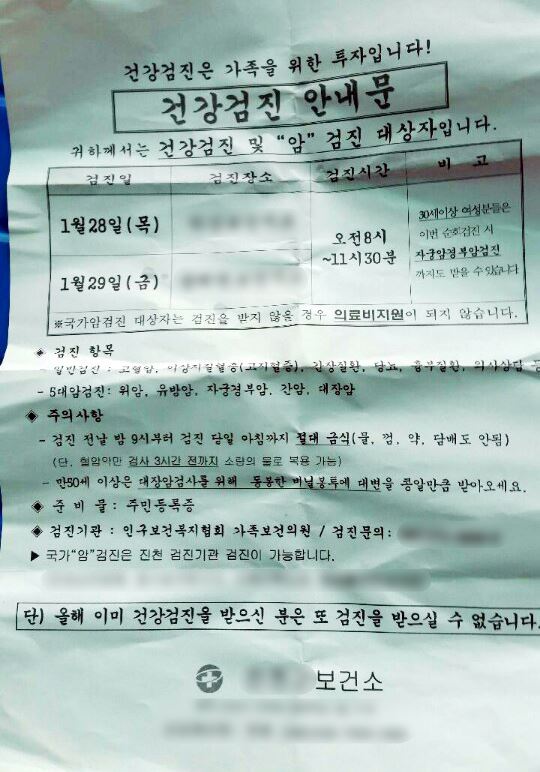 건강검진은 가족을 위한 투자입니다!
건강검진 안내문
귀하께서는 건강검진 및 "암" 검진 대상자입니다.
검진일 검진장소 검진시간 비 고
1월28일(목)
1월29일(금)
오전8시
~11시30분
30세이상 여성분들은
이번 순회검진 시
자궁암경부암검진
까지도 받을 수 있습니다
※국가암검진 대상자는 검진을 받지 않을 경우 의료비지원이 되지 않습니다.
◈ 검진 항목
- 일반검진 : 고혈압, 이상지질혈증(고지혈증), 간장질환, 당뇨, 흉부질환, 의사상담 등
- 5대암검진: 위암, 유방암, 자궁경부암, 간암, 대장암
◈ 주의사항
- 검진 전날 밤 9시부터 검진 당일 아침까지 절대 금식(물, 껌, 약, 담배도 안됨)
(단, 혈압약만 검사 3시간 전까지 소량의 물로 복용 가능)
- 만50세 이상은 대장암검사를 위해 동봉한 비닐봉투에 대변을 콩알만큼 받아오세요.
◈ 준 비 물 : 주민등록증
◈ 검진기관 : 인구보건복지협회 가족보건의원 / 검진문의:
▶ 국가"암"검진은 진천 검진기관 검진이 가능합니다.
단) 올해 이미 건강검진을 받으신 분은 또 검진을 받으실 수 없습니다.
보건소